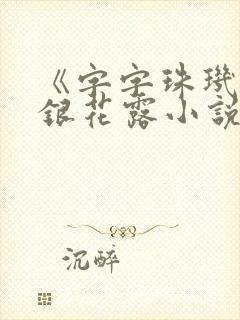 《字字珠璣
銀花露小說
沉醉